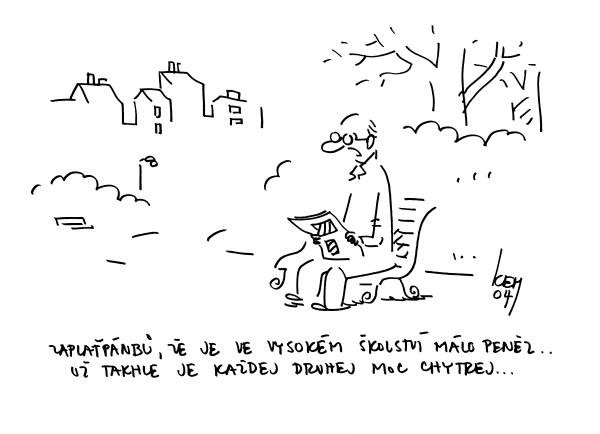 KEM
04
ZAPLAŤPÁNBŮ, ŽE JE VE VYSOKÉM ŠKOLSTVÍ MÁLO PENĚZ..
UŽ TAKHLE JE KAŽDEJ DRUHEJ MOC CHYTREJ...